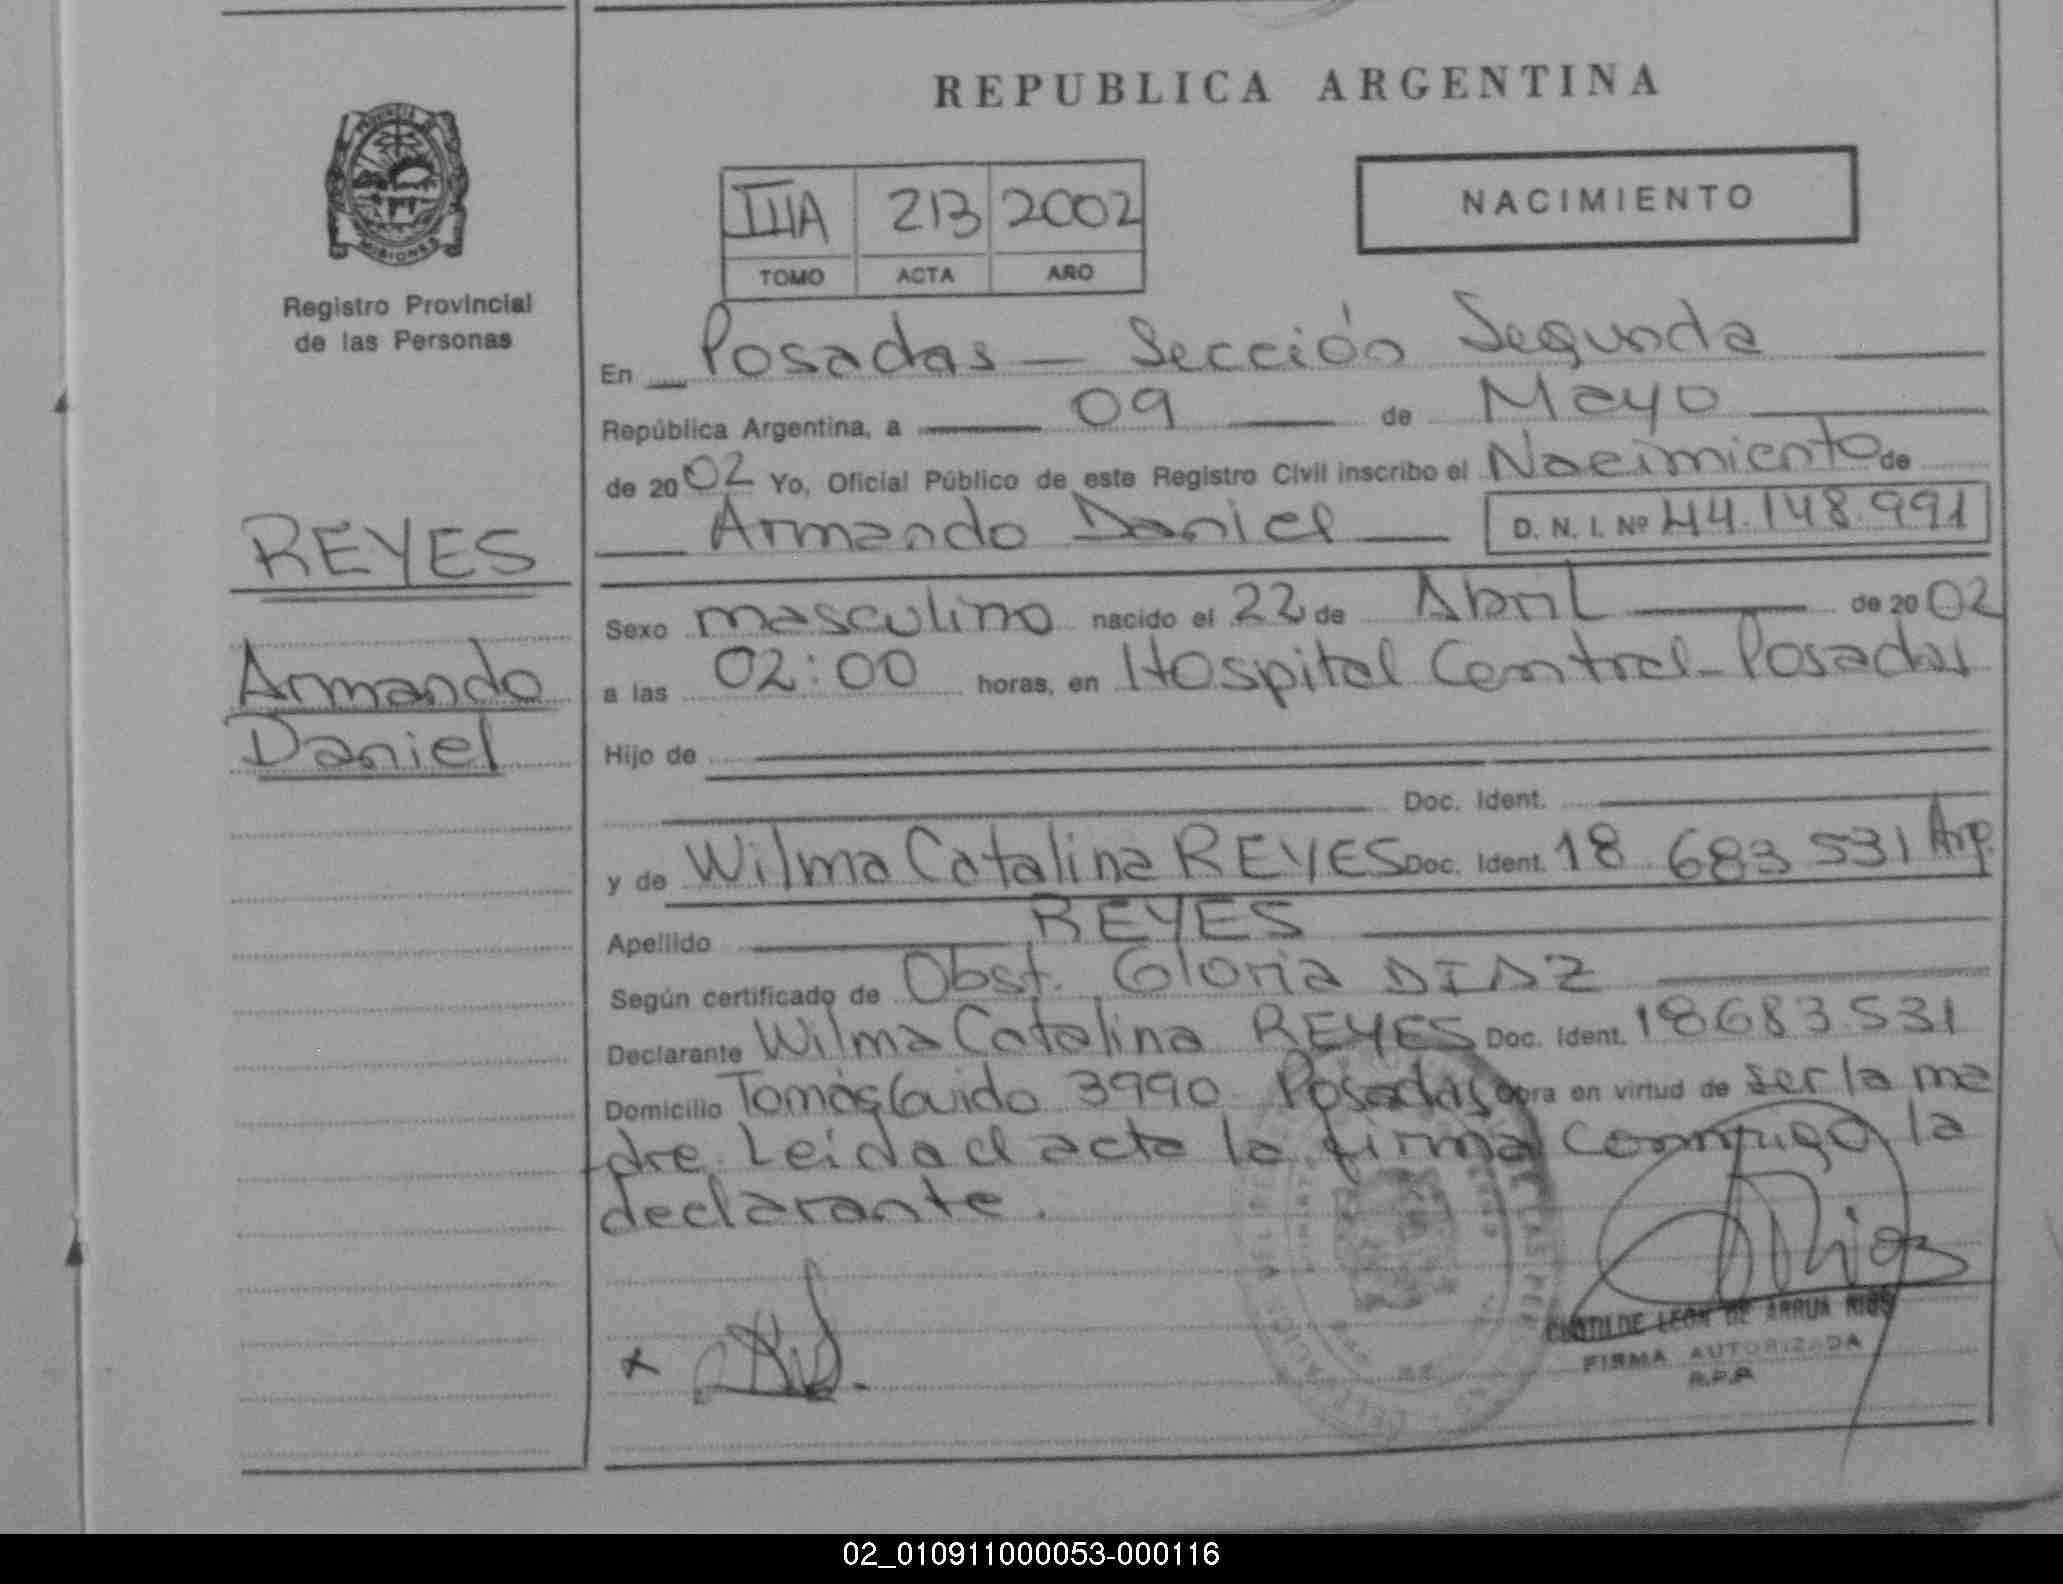 REPUBLICA ARGENTINA
PROVINCIA DE
MISIONES
Registro Provincial
de las Personas
IIIA 213 2002
TOMO ACTA AÑO
NACIMIENTO
En Posadas — Sección Segunda
República Argentina, a 09 de Mayo
de 2002 Yo, Oficial Público de este Registro Civil inscribo el Nacimiento de
Armando Daniel D. N. I. Nº 44.148.991
REYES
Armando
Daniel
Sexo masculino nacido el 22 de Abril de 2002
a las 02:00 horas, en Hospital Central - Posadas
Hijo de
Doc. Ident.
y de Wilma Catalina REYES Doc. Ident. 18 683 531 Arg.
Apellido REYES
Según certificado de Obst. Gloria DIAZ
Declarante Wilma Catalina REYES Doc. Ident. 18683.531
Domicilio Tomás Guido 3990 Posadas obra en virtud de ser la ma
dre. Leida el acta la firma conmigo la
declarante.
Rios
CLOTILDE LEON DE ARRUA RIOS
FIRMA AUTORIZADA
R.P.P.
02_010911000053-000116